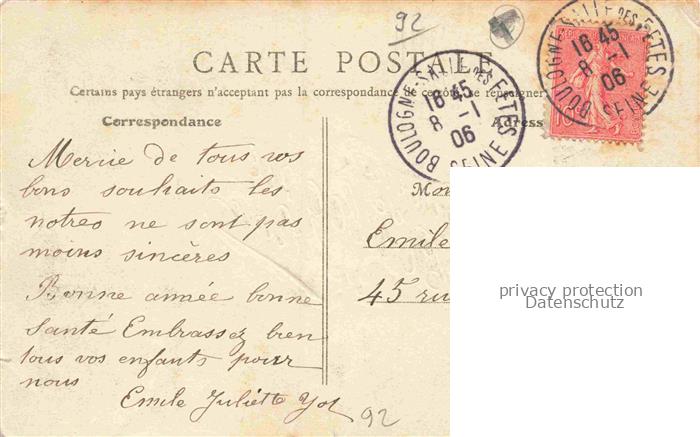 92
CARTE POSTALE
Certains pays étrangers n'acceptent pas la correspondance de ce côté, se renseigner
Correspondance
Adress
Merice de tous vos
bons souhaits les
notres ne sont pas
moins sincères
Bonne année bonne
santé Embrassez bien
tous vos enfants pour
nous
Emile Juliette
92
BOULOGNE SALLE DES FETES
16 45
8 -1
06
SEINE
BOULOGNE SALLE DES FETES
16 45
8 -1
06
SEINE
10
Mon
Emile
45 ru
privacy protection
Datenschutz